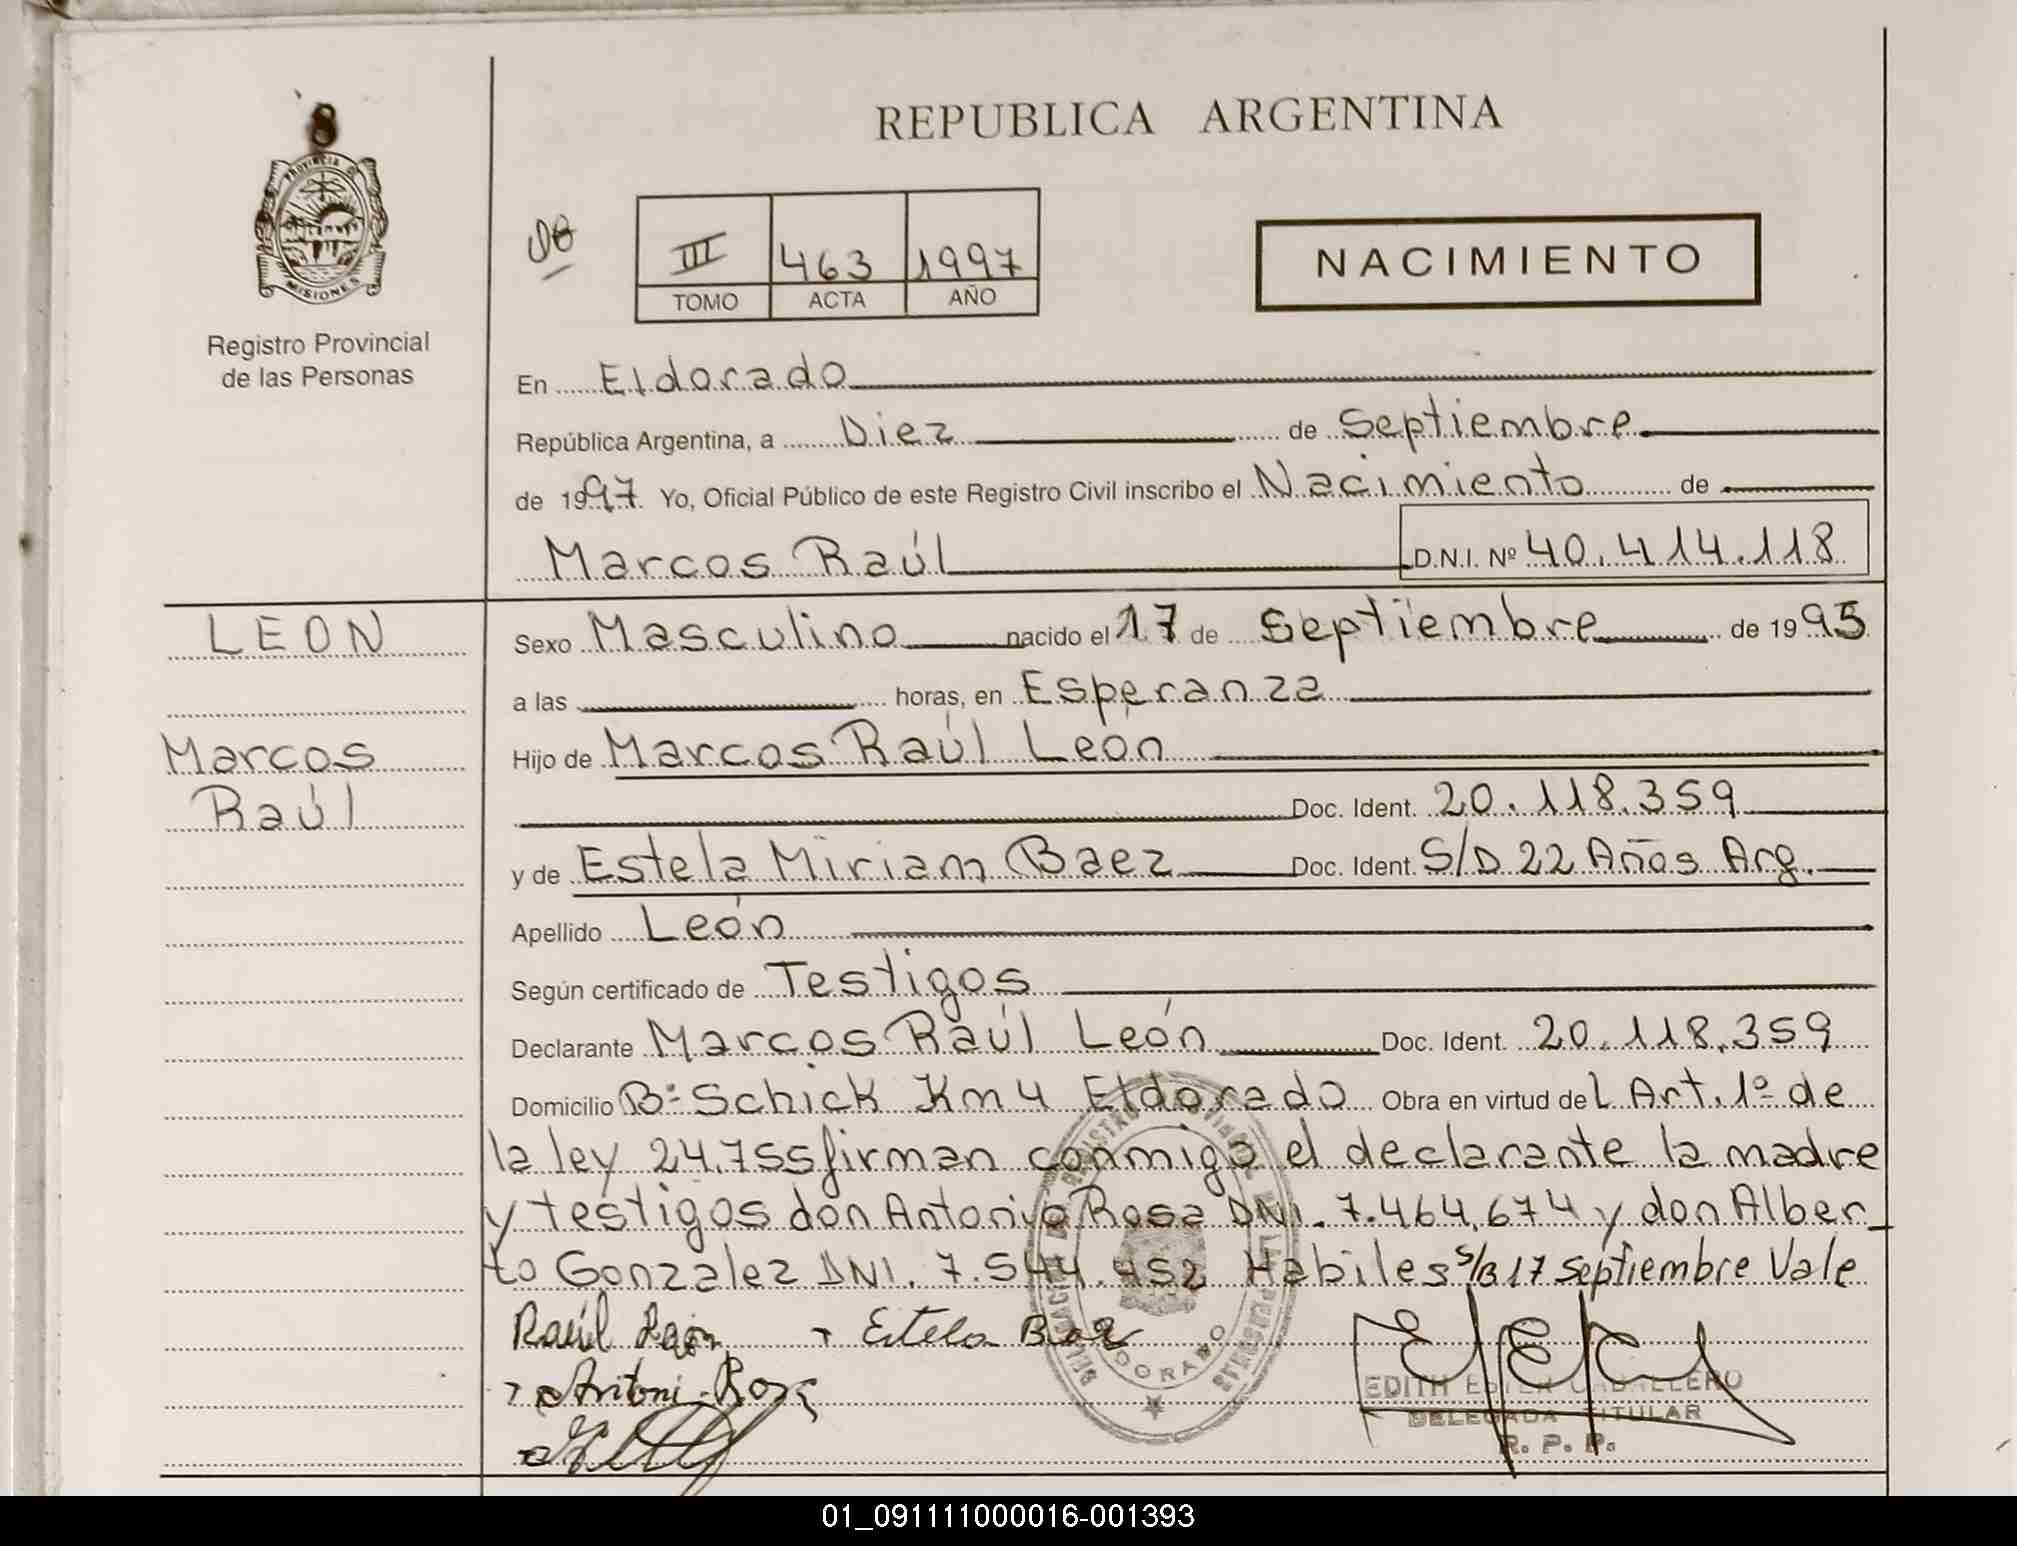 8
PROVINCIA
MISIONES
Registro Provincial
de las Personas
REPUBLICA ARGENTINA
III 463 1997
TOMO ACTA AÑO
NACIMIENTO
En Eldorado
República Argentina, a Diez de Septiembre
de 1997. Yo, Oficial Público de este Registro Civil inscribo el Nacimiento de
Marcos Raúl D.N.I. Nº 40.414.118
LEON
Marcos
Raúl
Sexo Masculino nacido el 17 de Septiembre de 1995
a las horas, en Esperanza
Hijo de Marcos Raúl León
Doc. Ident. 20.118.359
y de Estela Miriam Baez Doc. Ident. S/D 22 Años Arg.
Apellido León
Según certificado de Testigos
Declarante Marcos Raúl León Doc. Ident. 20.118.359
Domicilio Bº Schick Km 4 Eldorado Obra en virtud del Art. 1º de
la ley 24.755 firman conmigo el declarante la madre
y testigos don Antonio Rosa DNI. 7.464.674 y don Alber_
to Gonzalez DNI. 7.544.452 Habiles S/B 17 Septiembre Vale
Raúl León Estela Baez
Antoni Rosa
EDITH ESTER CABALLERO
DELEGADA TITULAR
R. P. P.
01_091111000016-001393